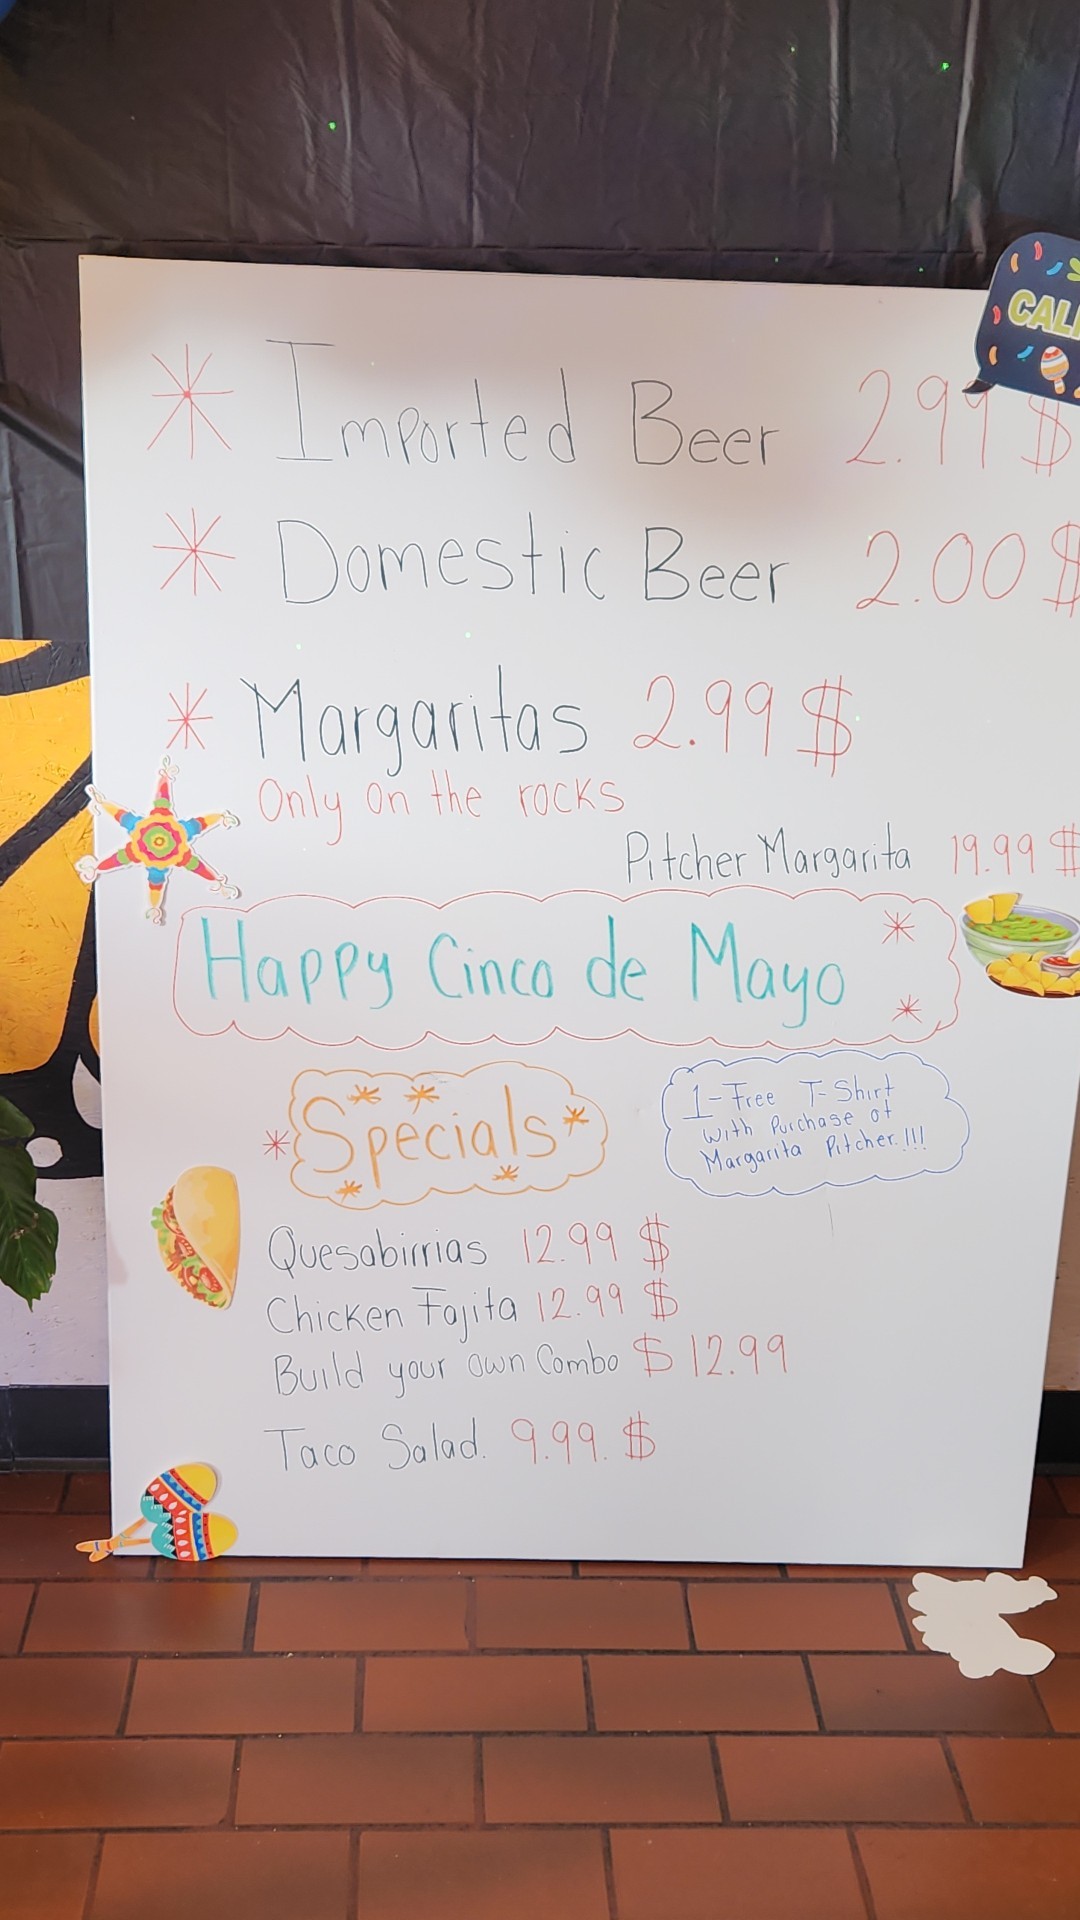 CALI
Imported Beer 2.99 $
Domestic Beer 2.00 $
Margaritas 2.99 $
Only on the rocks
Pitcher Margarita 19.99 $
Happy Cinco de Mayo
Specials
1-Free T-Shirt
with Purchase of
Margarita Pitcher.!!!
Quesabirrias 12.99 $
Chicken Fajita 12.99 $
Build your own Combo $ 12.99
Taco Salad. 9.99. $